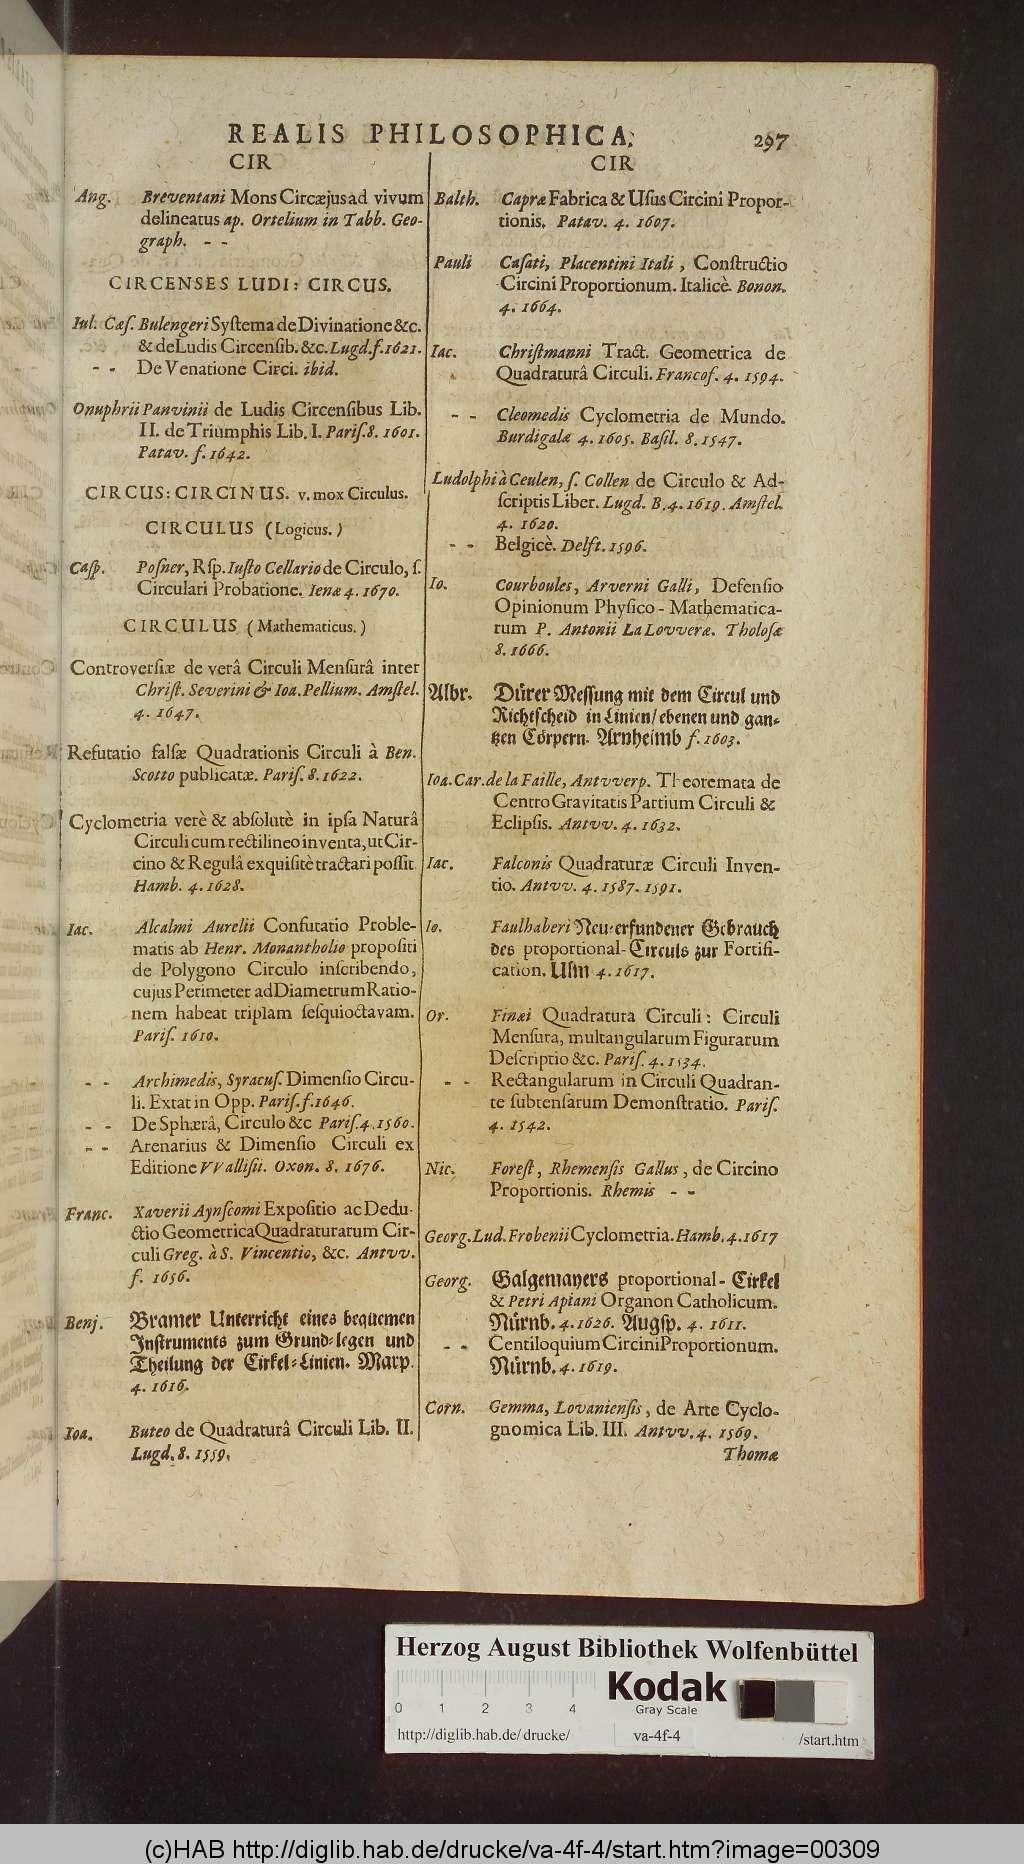 REALIS PHILOSOPHICA. 297
CIR
Ang. Breventani Mons Circæjus ad vivum
delineatus ap. Ortelium in Tabb. Geo-
graph. - -
CIRCENSES LUDI: CIRCUS.
Iul. Cæs. Bulengeri Systema de Divinatione &c.
& de Ludis Circensib. &c. Lugd. f. 1621.
- - De Venatione Circi. ibid.
Onuphrii Panvinii de Ludis Circensibus Lib.
II. de Triumphis Lib. I. Paris. 8. 1601.
Patav. f. 1642.
CIRCUS: CIRCINUS. v. mox Circulus.
CIRCULUS (Logicus.)
Casp. Posner, Rsp. Iusto Cellario de Circulo, s.
Circulari Probatione. Ienæ 4. 1670.
CIRCULUS (Mathematicus.)
Controversiæ de verâ Circuli Mensurâ inter
Christ. Severini & Ioa. Pellium. Amstel.
4. 1647.
Refutatio falsæ Quadrationis Circuli à Ben.
Scotto publicatæ. Paris. 8. 1622.
Cyclometria verè & absolutè in ipsa Naturâ
Circuli cum rectilineo inventa, ut Cir-
cino & Regulâ exquisitè tractari possit
Hamb. 4. 1628.
Iac. Alcalmi Aurelii Confutatio Proble-
matis ab Henr. Monantholio propositi
de Polygono Circulo inscribendo,
cujus Perimeter ad Diametrum Ratio-
nem habeat triplam sesquioctavam.
Paris. 1610.
- - Archimedis, Syracus. Dimensio Circu-
li. Extat in Opp. Paris. f. 1646.
- - De Sphærâ, Circulo &c Paris. 4. 1560.
- - Arenarius & Dimensio Circuli ex
Editione VVallisii. Oxon. 8. 1676.
Franc. Xaverii Aynscomi Expositio ac Dedu-
ctio Geometrica Quadraturarum Cir-
culi Greg. à S. Vincentio, &c. Antvv.
f. 1656.
Benj. Bramer Unterricht eines bequemen
Instruments zum Grund-legen und
Theilung der Cirkel-Linien. Marp.
4. 1616.
Ioa. Buteo de Quadraturâ Circuli Lib. II.
Lugd. 8. 1559.
CIR
Balth. Capræ Fabrica & Usus Circini Propor-
tionis. Patav. 4. 1607.
Pauli Casati, Placentini Itali, Constructio
Circini Proportionum. Italicè. Bonon.
4. 1664.
Iac. Christmanni Tract. Geometrica de
Quadraturâ Circuli. Francof. 4. 1594.
- - Cleomedis Cyclometria de Mundo.
Burdigalæ 4. 1605. Basil. 8. 1547.
Ludolphi à Ceulen, s. Collen de Circulo & Ad-
scriptis Liber. Lugd. B. 4. 1619. Amstel.
4. 1620.
- - Belgicè. Delft. 1596.
Io. Courboules, Arverni Galli, Defensio
Opinionum Physico-Mathematica-
rum P. Antonii La Lovveræ. Tholosæ
8. 1666.
Albr. Dürer Messung mit dem Circul und
Richtscheid in Linien/ ebenen und gan-
tzen Cörpern. Arnheimb f. 1603.
Ioa. Car. de la Faille, Antvverp. Theoremata de
Centro Gravitatis Partium Circuli &
Eclipsis. Antvv. 4. 1632.
Iac. Falconis Quadraturæ Circuli Inven-
tio. Antvv. 4. 1587. 1591.
Io. Faulhaberi Neu-erfundener Gebrauch
des proportional-Circuls zur Fortifi-
cation. Ulm 4. 1617.
Or. Finæi Quadratura Circuli: Circuli
Mensura, multangularum Figurarum
Descriptio &c. Paris. 4. 1534.
- - Rectangularum in Circuli Quadran-
te subtensarum Demonstratio. Paris.
4. 1542.
Nic. Forest, Rhemensis Gallus, de Circino
Proportionis. Rhemis - -
Georg. Lud. Frobenii Cyclometria. Hamb. 4. 1617
Georg. Galgemayers proportional-Cirkel
& Petri Apiani Organon Catholicum.
Nürnb. 4. 1626. Augsp. 4. 1611.
- - Centiloquium Circini Proportionum.
Nürnb. 4. 1619.
Corn. Gemma, Lovaniensis, de Arte Cyclo-
gnomica Lib. III. Antvv. 4. 1569.
Thomæ
Herzog August Bibliothek Wolfenbüttel
0 1 2 3 4
Kodak
Gray Scale
http://diglib.hab.de/drucke/ va-4f-4 /start.htm
(c)HAB http://diglib.hab.de/drucke/va-4f-4/start.htm?image=00309